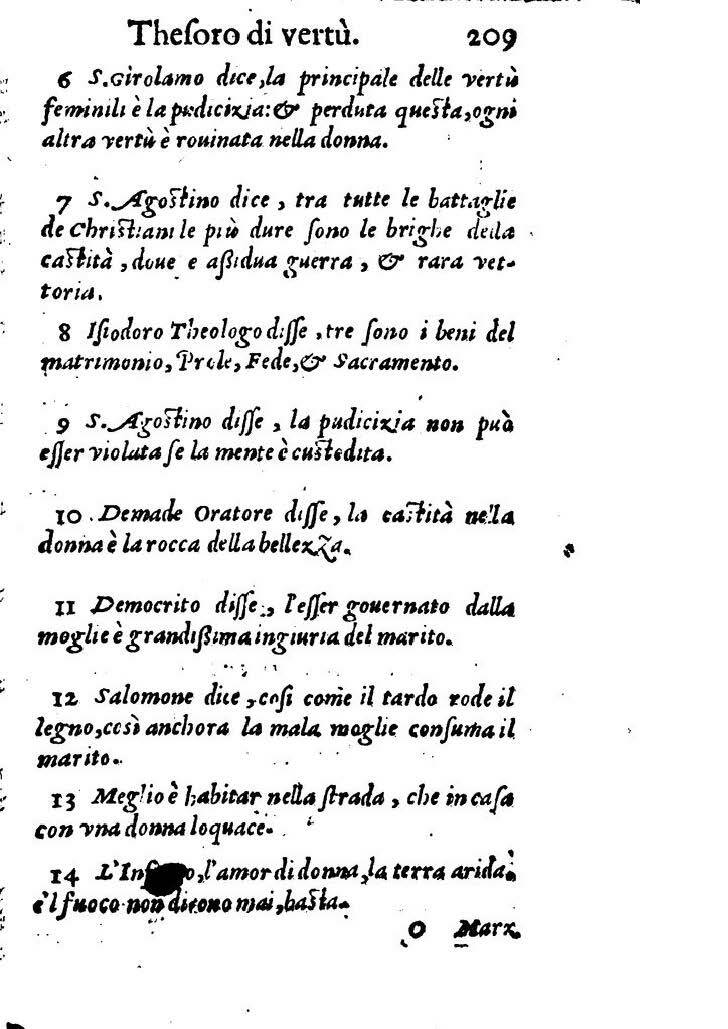 Theſoro di vertù. 209
6 S. Girolamo dice, la principale delle vertù
feminili è la pudicizia: & perduta queſta, ogni
altra vertù è rouinata nella donna.
7 S. Agoſtino dice, tra tutte le battaglie
de Chriſtiani le più dure ſono le brighe della
caſtità, doue e aßidua guerra, & rara vet-
toria.
8 Iſiodoro Theologo diſſe, tre ſono i beni del
matrimonio, Prole, Fede, & Sacramento.
9 S. Agoſtino diſſe, la pudicizia non può
eſſer violata ſe la mente è cuſtodita.
10 Demade Oratore diſſe, la caſtità nella
donna è la rocca della bellezza.
11 Democrito diſſe, l'eſſer gouernato dalla
moglie è grandißima ingiuria del marito.
12 Salomone dice, coſi come il tardo rode il
legno, così anchora la mala moglie conſuma il
marito.
13 Meglio è habitar nella ſtrada, che in caſa
con vna donna loquace.
14 l'amor di donna, la terra arida,
è'l fuoco non dicono mai, baſta.
O Marz.